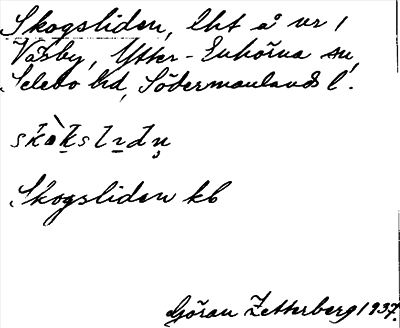 Skogsliden, lht å nr 1
Väsby, Ytter-Enhörna sn,
Selebo hd, Södermanlands l.
skòksl̲i̲dn̥
Skogsliden kb
Göran Zetterberg 1937.